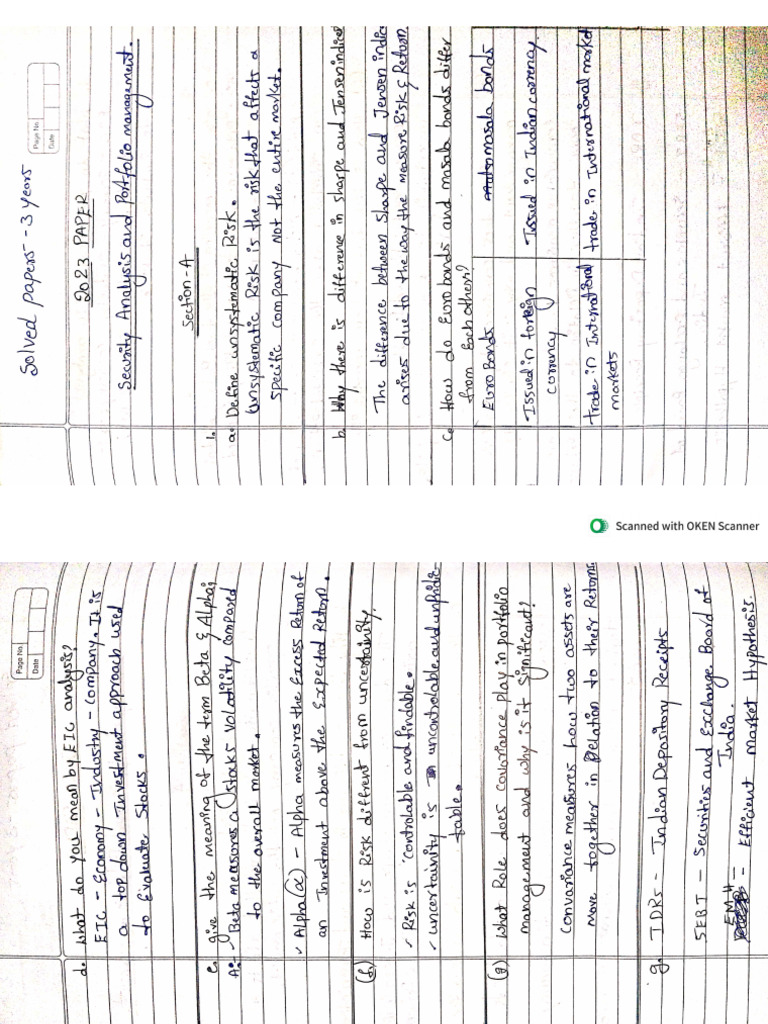 Solved papers - 3 years
Page No.
Date
2023 PAPER
Security Analysis and Portfolio management.
Section-A
1.
a. Define unsystematic Risk.
Unsystematic Risk is the risk that affects a
specific company Not the entire market.
b. Why there is difference in sharpe and Jensen indice
The difference between Sharpe and Jensen indice
arises due to the way the measure Risk & Return
c. How do Euro bonds and masala bonds differ
from Each other?
Euro Bonds masala bonds
Issued in foreign currency Issued in Indian currency.
trade in International markets trade in International market
Scanned with OKEN Scanner
Page No.
Date
d. What do you mean by EIC analysis?
EIC - Economy - Industry - Company. It is
a top down Investment approach used
to Evaluate Stocks.
e. give the meaning of the term Beta & Alpha;
A:- Beta measures a stocks volatility compared
to the overall market.
Alpha(α) - Alpha measures the Excess Return of
an Investment above the Expected Return.
(f) How is Risk different from uncertainity.
Risk is controlable and findable.
uncertainity is uncontrolable and unpridic-
table.
(g) What Role does covariance play in portfolio
management and why is it significant?
Convariance measures how two assets are
move together in Relation to their Returns
g. IDRs - Indian Depository Receipts
SEBI - Securities and Exchange Board of
India.
EMH - Efficient market Hypothesis.